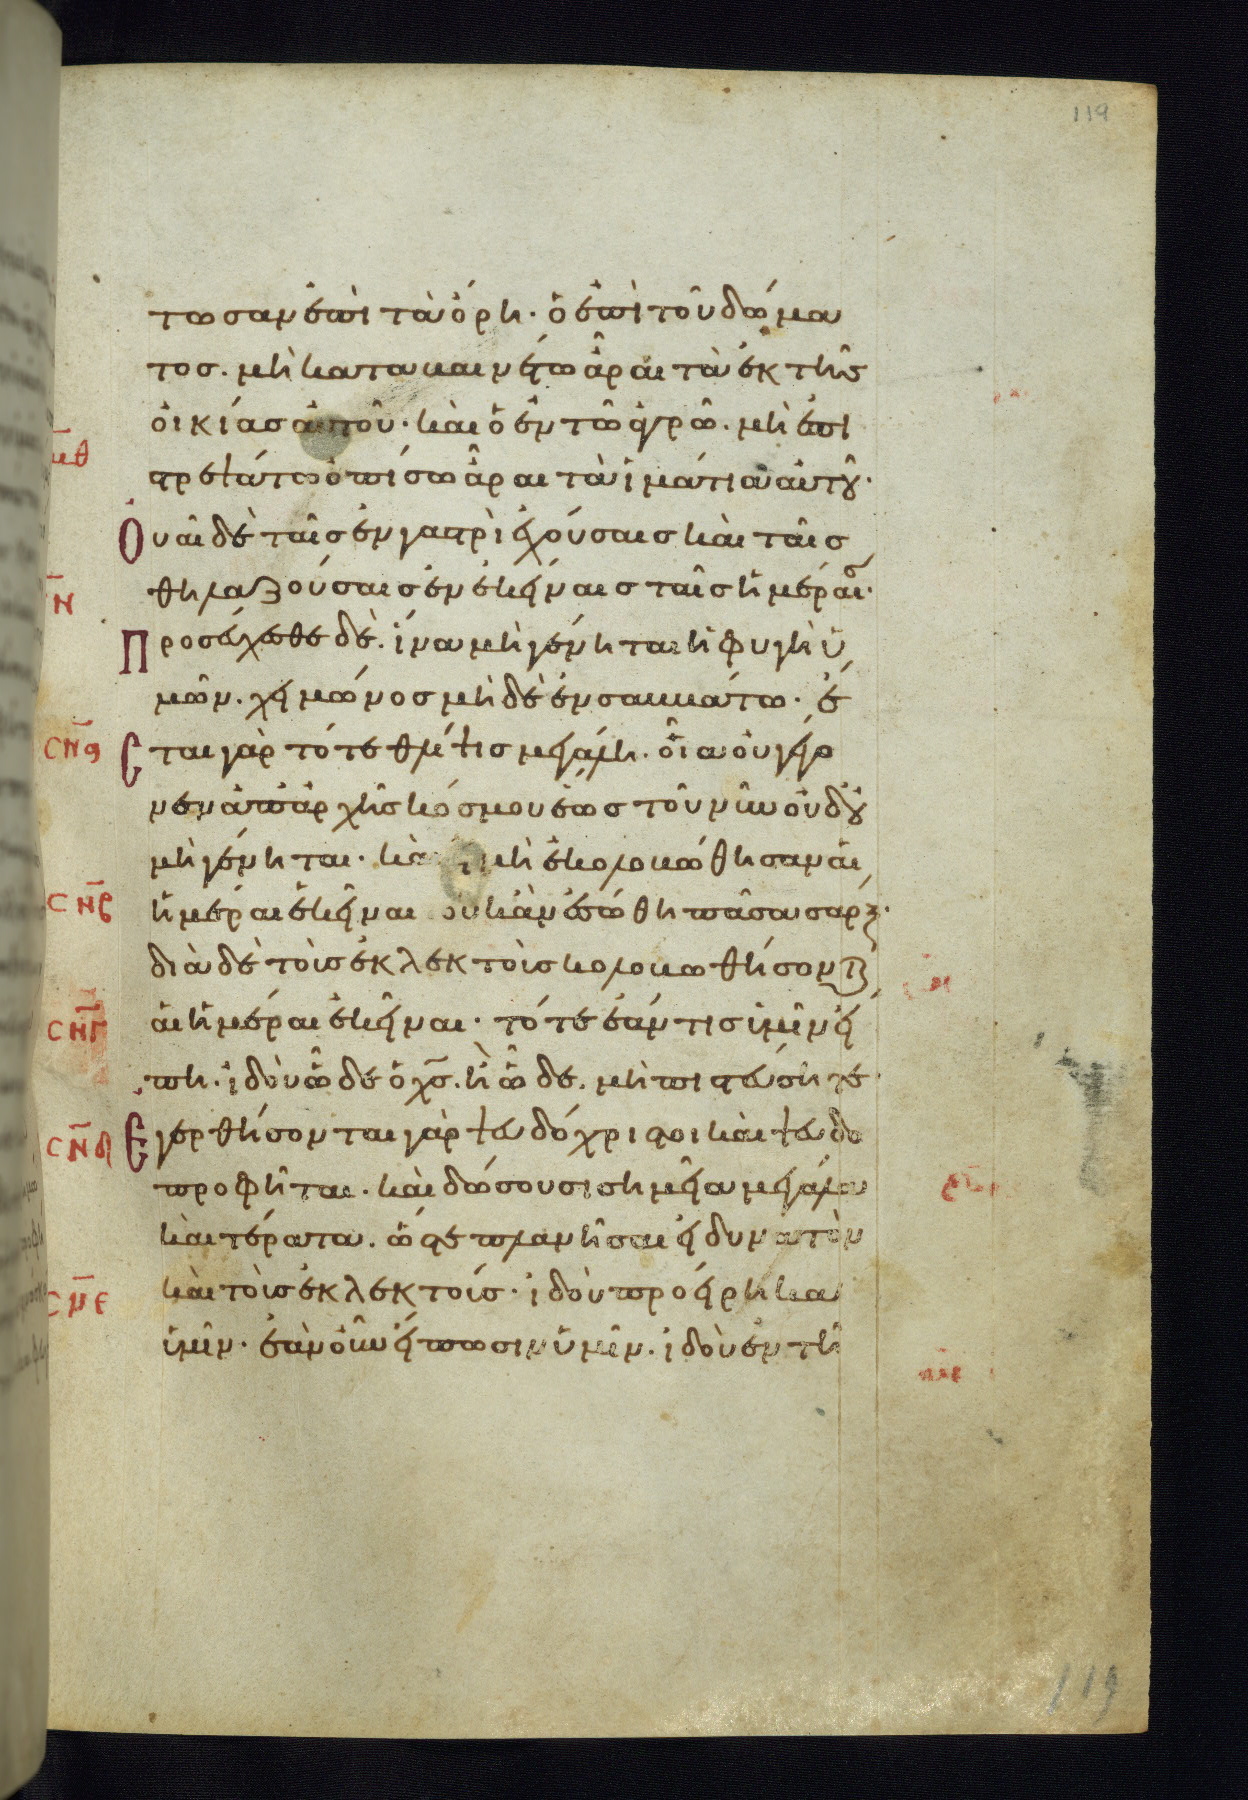 119
τωσαν ἐπὶ τὰ ὄρη· ὁ ἐπὶ τοῦ δώμα
τοσ. μὴ καταβαινέτω ἆραι τὰ ἐκ τῆς
οἰκίασ αὐτοῦ· καὶ ὁ ἐν τῶ ἀγρῶ. μὴ ἐπι
στρεψάτω ὀπίσω ἆραι τὰ ἱμάτια αὐτοῦ·
μθ
Οὐαὶ δὲ ταῖσ ἐν γαστρὶ ἐχούσαισ καὶ ταῖσ
θηλαζούσαισ ἐν ἐκείναισ ταῖσ ἡμέραις·
Ν
Προσέχεσθε δὲ. ἵνα μὴ γένηται ἡ φυγὴ ὑ
μῶν. χειμώνοσ μὴ δὲ ἐν σαββάτω· ἔ
CΝα
Εσται γὰρ τότε θλίψισ μεγάλη. οἵα οὐ γέγο
νεν ἀπ' ἀρχῆσ κόσμου ἕωσ τοῦ νῦν οὐδ' οὐ
μὴ γένηται· καὶ μὴ ἐκολοβώθησαν αἱ
CΝβ
ἡμέραι ἐκεῖναι οὐκ ἂν ἐσώθη πᾶσα σαρξ·
διὰ δὲ τοὶσ ἐκλεκτοὶσ κολοβωθήσονται
CΝΓ
αἱ ἡμέραι ἐκεῖναι· τότε ἐάν τισ ὑμῖν εἴ
πη. ἰδοὺ ὧδε ὁ χσ. ἢ ὧδε. μὴ πιστεύσητε·
CΝδ
Εγερθήσονται γὰρ ψευδόχριστοι καὶ ψευδο
προφῆται. καὶ δώσουσι σημεῖα μεγάλα
καὶ τέρατα. ὥστε πλανῆσαι εἰ δυνατὸν
CΝε
καὶ τοὶσ ἐκλεκτοίσ· ἰδοὺ προείρηκα
ὑμῖν. ἐὰν οὖν εἴπωσιν ὑμῖν. ἰδοὺ ἐν τῆ
119